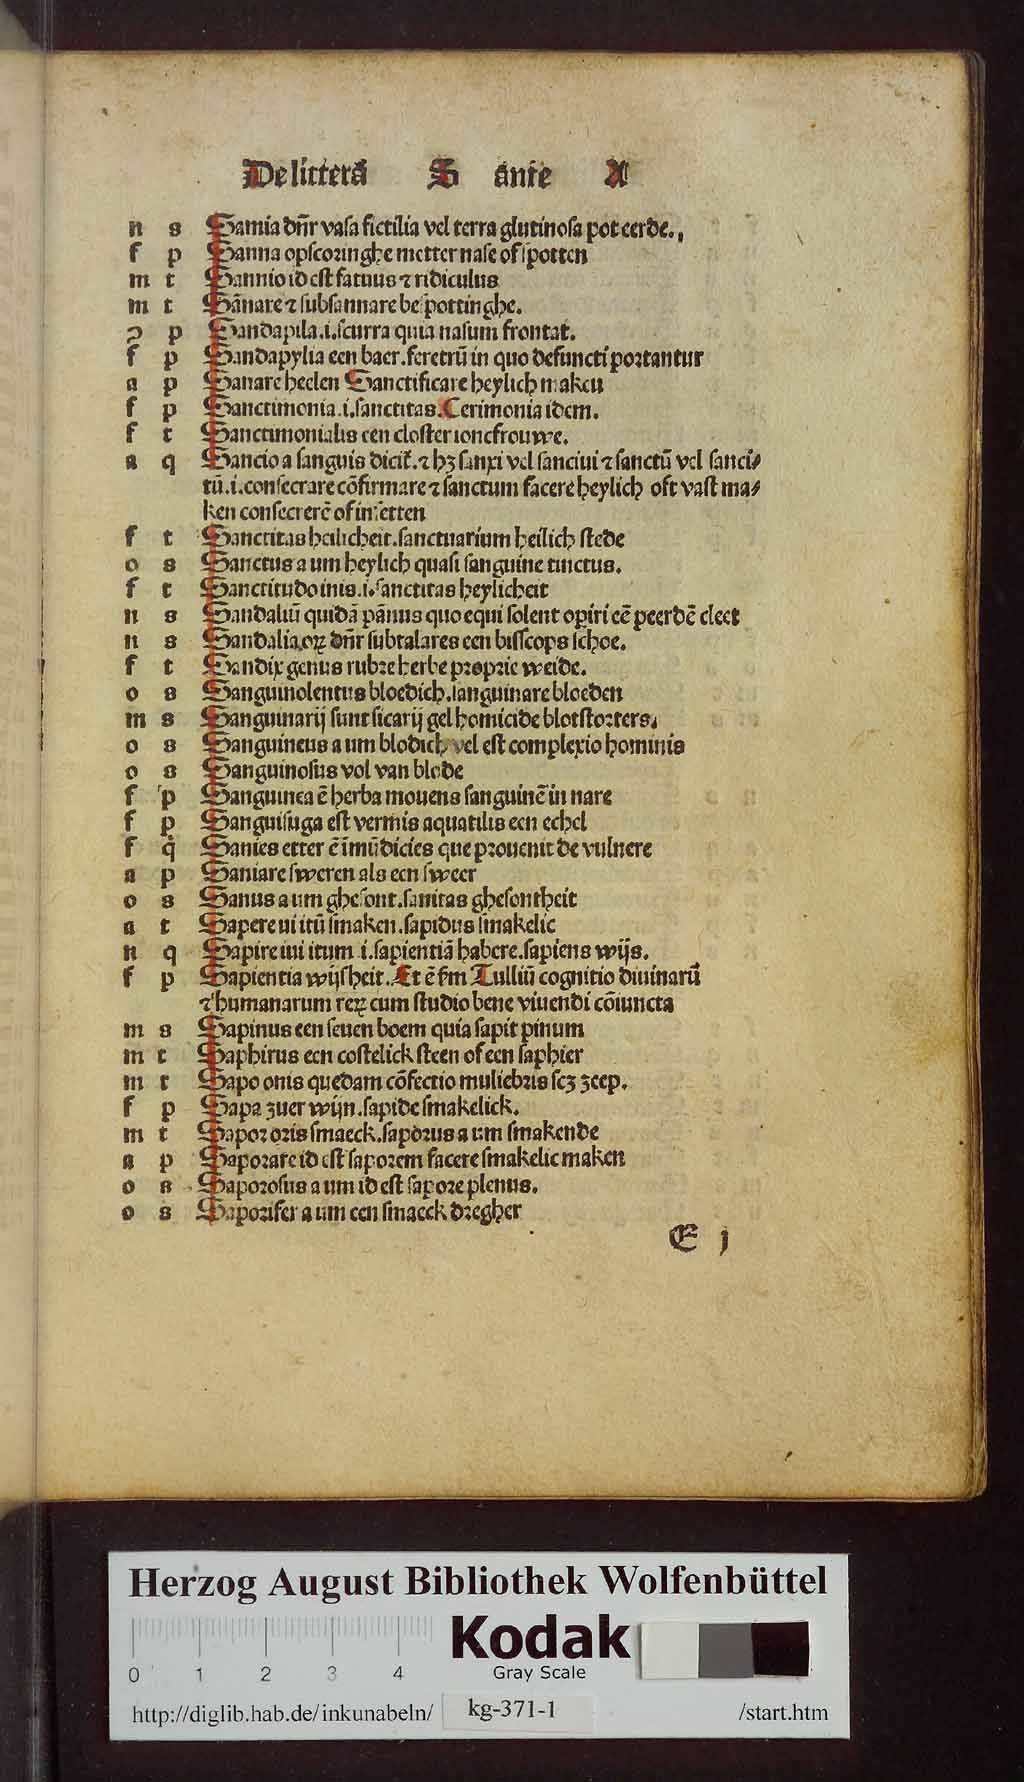 De litterā S ante A
n s Samia dn̄r vasa fictilia vel terra glutinosa pot eerde.
f p Sanna opscoringhe metter nase of spotten
m t Sannio id est fatuus ⁊ ridiculus
m t Sānare ⁊ subsannare bespottinghe.
ɔ p Sandapila .i. scurra quia nasum frontat.
f p Sandapylia een baer. feretrū in quo defuncti portantur
a p Sanare heelen Sanctificare heylich maken
f p Sanctimonia .i. sanctitas. Cerimonia idem.
f t Sanctimonialis een closter ioncfrouwe.
a q Sancio a sanguis dicit̄. ⁊ hꝫ sanxi vel sanciui ⁊ sanctū vel sanci⸗
tū .i. consecrare cōfirmare ⁊ sanctum facere heylich oft vast ma⸗
ken consecrerē of insetten
f t Sanctitas heilicheit. sanctuarium heilich stede
o s Sanctus a um heylich quasi sanguine tinctus.
f t Sanctitudo inis .i. sanctitas heylicheit
n s Sandaliū quidā pānus quo equi solent opiri eē peerdē cleet
n s Sandalia oꝝ dn̄r subtalares een bisscops schoe.
f t Sandix genus rubre herbe proprie weide.
o s Sanguinolentus bloedich. sanguinare bloeden
m s Sanguinarij sunt sicarij gel homicide blotstorters.
o s Sanguineus a um blodich vel est complexio hominis
o s Sanguinosus vol van blode
f p Sanguinea ē herba mouens sanguinē in nare
f p Sanguisuga est vermis aquatilis een echel
f q Sanies etter ē īmūdicies que prouenit de vulnere
a p Saniare sweren als een sweer
o s Sanus a um ghesont. sanitas ghesontheit
a t Sapere ui itū smaken. sapidus smakelic
n q Sapire iui itum .i. sapientiā habere. sapiens wijs.
f p Sapientia wijsheit. Et ē scd̄m Tulliū cognitio diuinarū
⁊ humanarum reꝝ cum studio bene viuendi cōiuncta
m s Sapinus een seuen boem quia sapit pinum
m t Saphirus een costelick steen of een saphier
m t Sapo onis quedam cōfectio muliebris scꝫ zeep.
f p Sapa zuer wijn. sapide smakelick.
m t Sapor oris smaeck. saporus a um smakende
a p Saporare id est saporem facere smakelic maken
o s Saporosus a um id est sapore plenus.
o s Saporifer a um een smaeck dregher
E j
Herzog August Bibliothek Wolfenbüttel
Kodak
0 1 2 3 4
Gray Scale
http://diglib.hab.de/inkunabeln/ kg-371-1 /start.htm